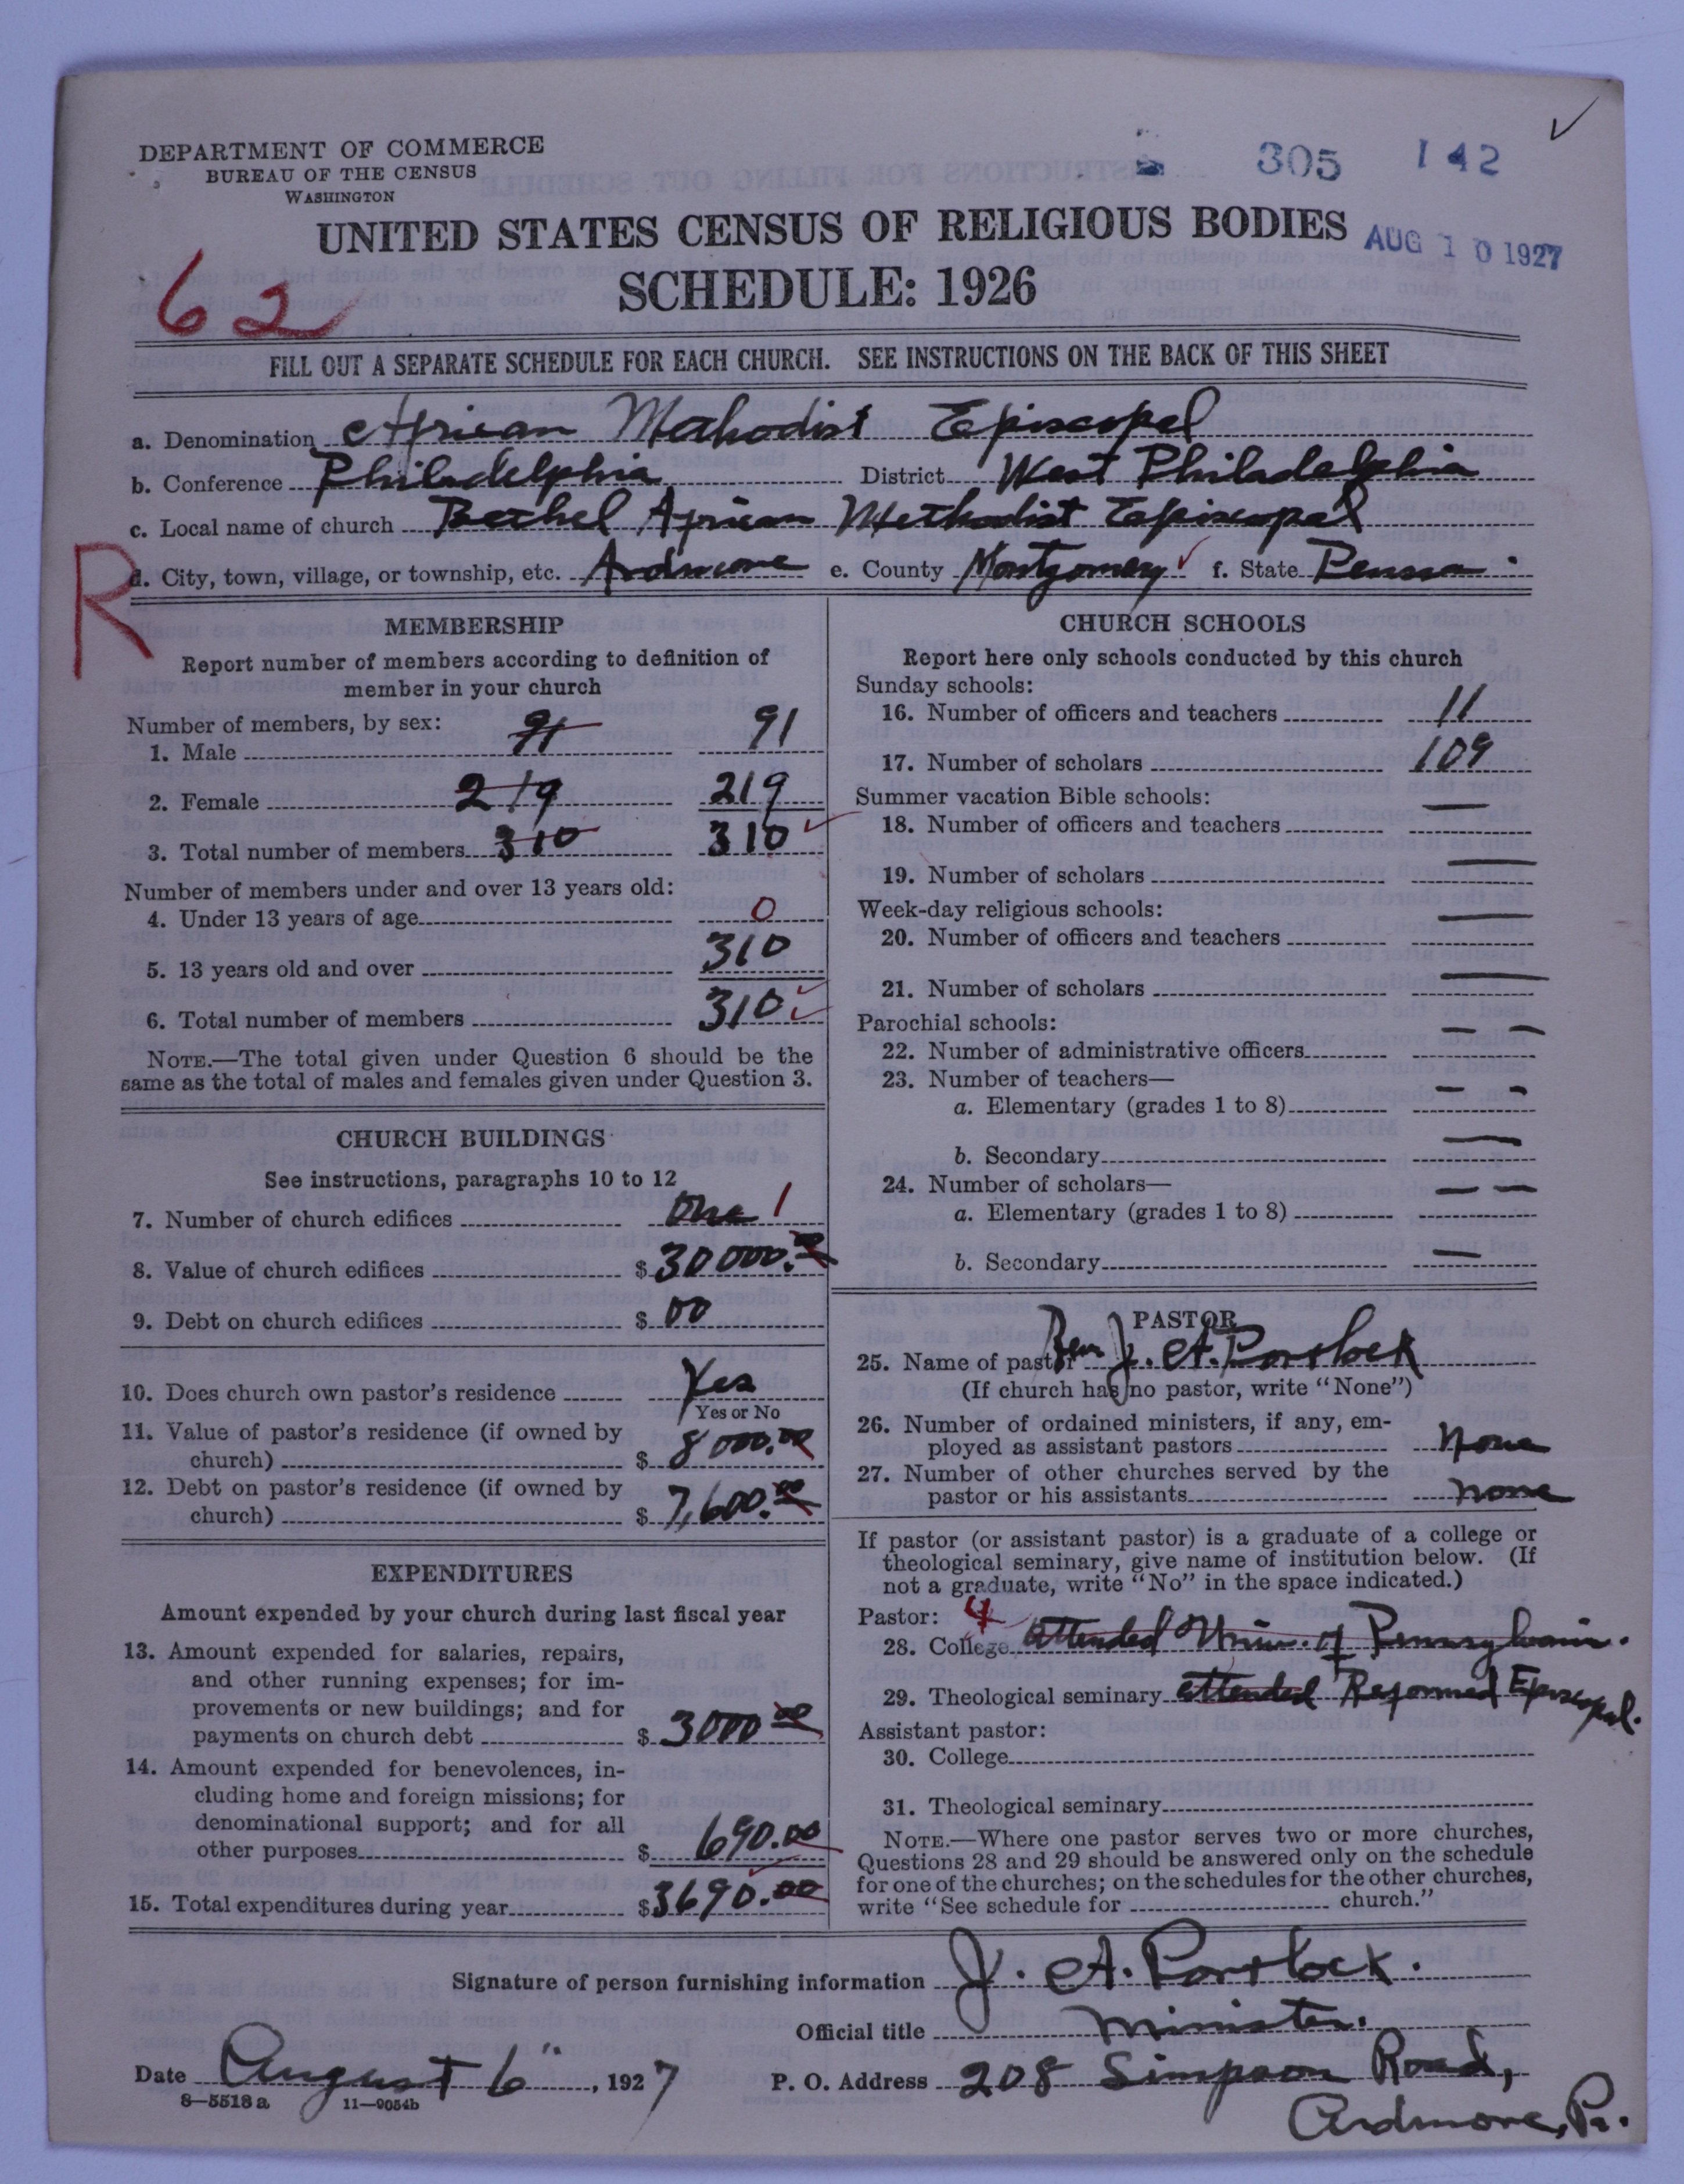 DEPARTMENT OF COMMERCE
BUREAU OF THE CENSUS
WASHINGTON
305 142
UNITED STATES CENSUS OF RELIGIOUS BODIES
AUG 10 1927
SCHEDULE: 1926
62
FILL OUT A SEPARATE SCHEDULE FOR EACH CHURCH. SEE INSTRUCTIONS ON THE BACK OF THIS SHEET
a. Denomination African Methodist Episcopal
b. Conference Philadelphia District West Philadelphia
c. Local name of church Bethel African Methodist Episcopal
R
d. City, town, village, or township, etc. Ardmore e. County Montgomery f. State Penna.
MEMBERSHIP
Report number of members according to definition of
member in your church
Number of members, by sex:
1. Male 91 91
2. Female 219 219
3. Total number of members 310 310
Number of members under and over 13 years old:
4. Under 13 years of age 0
5. 13 years old and over 310
6. Total number of members 310
NOTE.—The total given under Question 6 should be the
same as the total of males and females given under Question 3.
CHURCH BUILDINGS
See instructions, paragraphs 10 to 12
7. Number of church edifices One 1
8. Value of church edifices $ 30000.00
9. Debt on church edifices $ 00
10. Does church own pastor's residence Yes
Yes or No
11. Value of pastor's residence (if owned by
church) $ 8000.00
12. Debt on pastor's residence (if owned by
church) $ 7,600.00
EXPENDITURES
Amount expended by your church during last fiscal year
13. Amount expended for salaries, repairs,
and other running expenses; for im-
provements or new buildings; and for
payments on church debt $ 3000 00
14. Amount expended for benevolences, in-
cluding home and foreign missions; for
denominational support; and for all
other purposes $ 690.00
15. Total expenditures during year $ 3690.00
CHURCH SCHOOLS
Report here only schools conducted by this church
Sunday schools:
16. Number of officers and teachers 11
17. Number of scholars 109
Summer vacation Bible schools:
18. Number of officers and teachers —
19. Number of scholars —
Week-day religious schools:
20. Number of officers and teachers —
21. Number of scholars —
Parochial schools:
22. Number of administrative officers — —
23. Number of teachers—
a. Elementary (grades 1 to 8) — —
b. Secondary —
24. Number of scholars—
a. Elementary (grades 1 to 8) — —
b. Secondary —
PASTOR
25. Name of pastor Rev J. A. Portlock
(If church has no pastor, write "None")
26. Number of ordained ministers, if any, em-
ployed as assistant pastors None
27. Number of other churches served by the
pastor or his assistants None
If pastor (or assistant pastor) is a graduate of a college or
theological seminary, give name of institution below. (If
not a graduate, write "No" in the space indicated.)
Pastor: 4
28. College attended Univ. of Pennsylvania.
29. Theological seminary attended Reformed Episcopal.
Assistant pastor:
30. College
31. Theological seminary
NOTE.—Where one pastor serves two or more churches,
Questions 28 and 29 should be answered only on the schedule
for one of the churches; on the schedules for the other churches,
write "See schedule for church."
Signature of person furnishing information J. A. Portlock.
Official title Minister.
Date August 6", 1927 P. O. Address 208 Simpson Road,
Ardmore, Pa.
8—5518 a 11—9054b